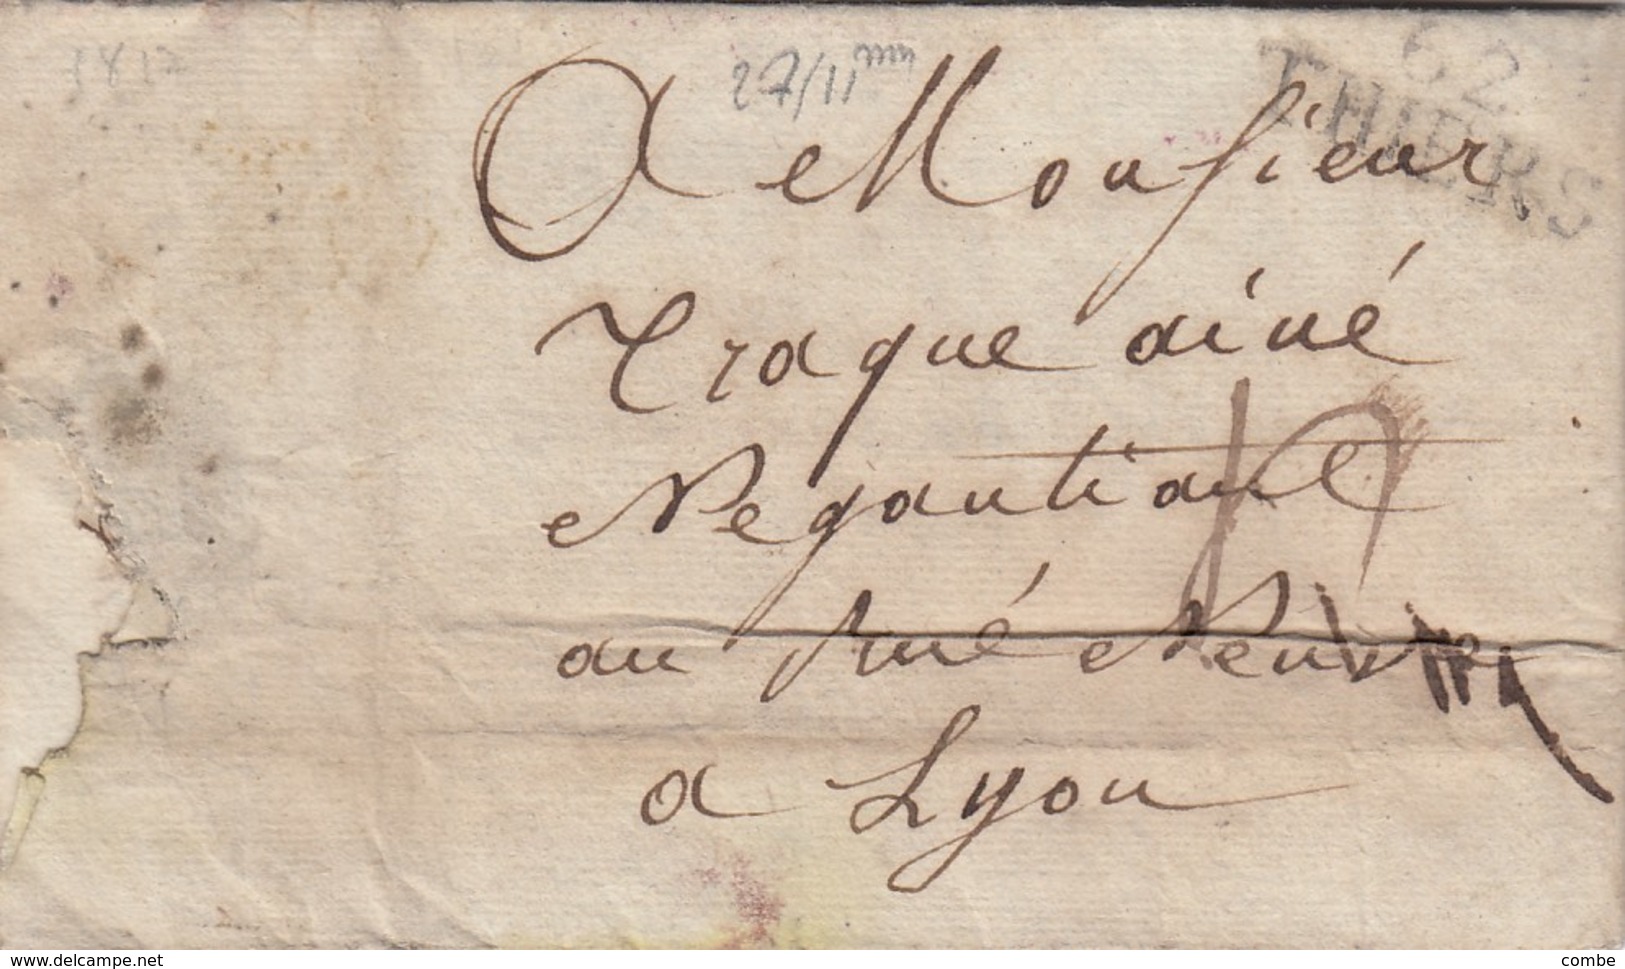 1812
27/11
62
THIERS
A Monsieur
Traque ainé
Negantiant
au rué Neuve
a Lyon
www.delcampe.net
combe